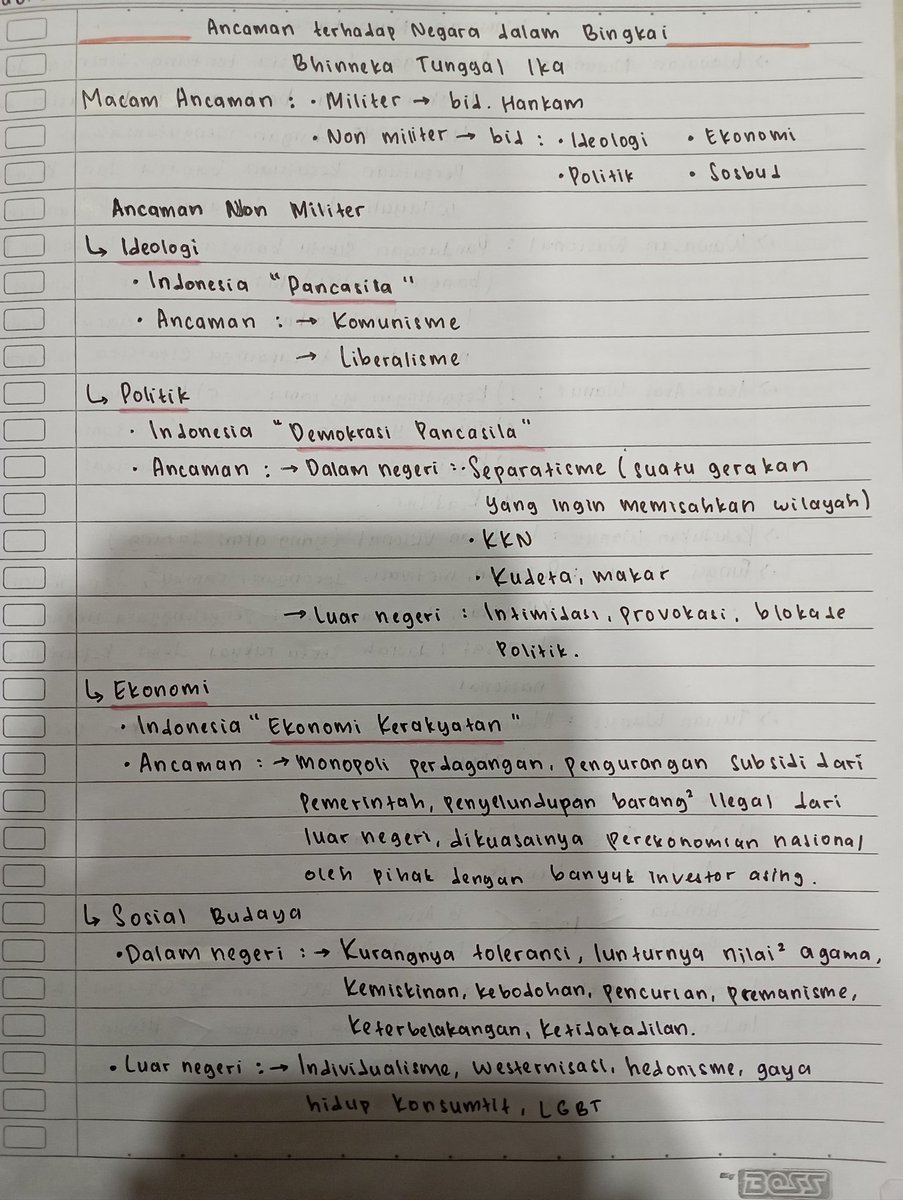 Ancaman terhadap Negara dalam Bingkai
Bhinneka Tunggal Ika
Macam Ancaman : • Militer → bid. Hankam
• Non militer → bid : • Ideologi • Ekonomi
• Politik • Sosbud
Ancaman Non Militer
↳ Ideologi
• Indonesia "Pancasila"
• Ancaman : → Komunisme
→ Liberalisme
↳ Politik
• Indonesia "Demokrasi Pancasila"
• Ancaman : → Dalam negeri : • Separatisme (suatu gerakan
yang ingin memisahkan wilayah)
• KKN
• Kudeta, makar
→ Luar negeri : Intimidasi, provokasi, blokade
politik.
↳ Ekonomi
• Indonesia "Ekonomi Kerakyatan"
• Ancaman : → Monopoli perdagangan, pengurangan subsidi dari
pemerintah, penyelundupan barang² Ilegal dari
luar negeri, dikuasainya perekonomian nasional
oleh pihak dengan banyak investor asing.
↳ Sosial Budaya
• Dalam negeri : → Kurangnya toleransi, lunturnya nilai² agama,
kemiskinan, kebodohan, pencurian, premanisme,
keterbelakangan, ketidakadilan.
• Luar negeri : → Individualisme, westernisasi, hedonisme, gaya
hidup konsumtif, LGBT
by BOSS